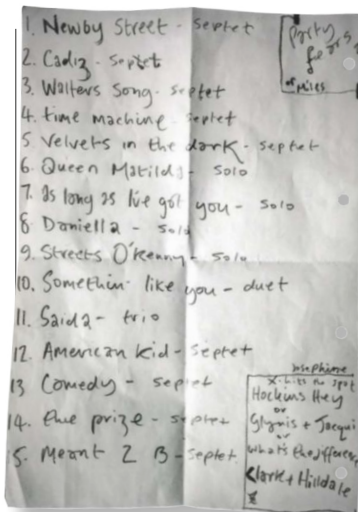 1. Newby Street - septet
2. Cadiz - septet
3. Walters Song - septet
4. time machine - septet
5 Velvets in the dark - septet
6. Queen Matilda - solo
7. As long as I've got you - solo
8 Daniella - solo
9. Streets O'Kenny - solo
10. Somethin' like you - duet
11. Saida - trio
12. American kid - septet
13 Comedy - septet
14. the prize - septet
5. Meant 2 B - septet
Party
of miles
Josephine
X-hits the spot
Hockins Hey
or
Glynis + Jacqui
or
what's the difference
Clark + Hilldale